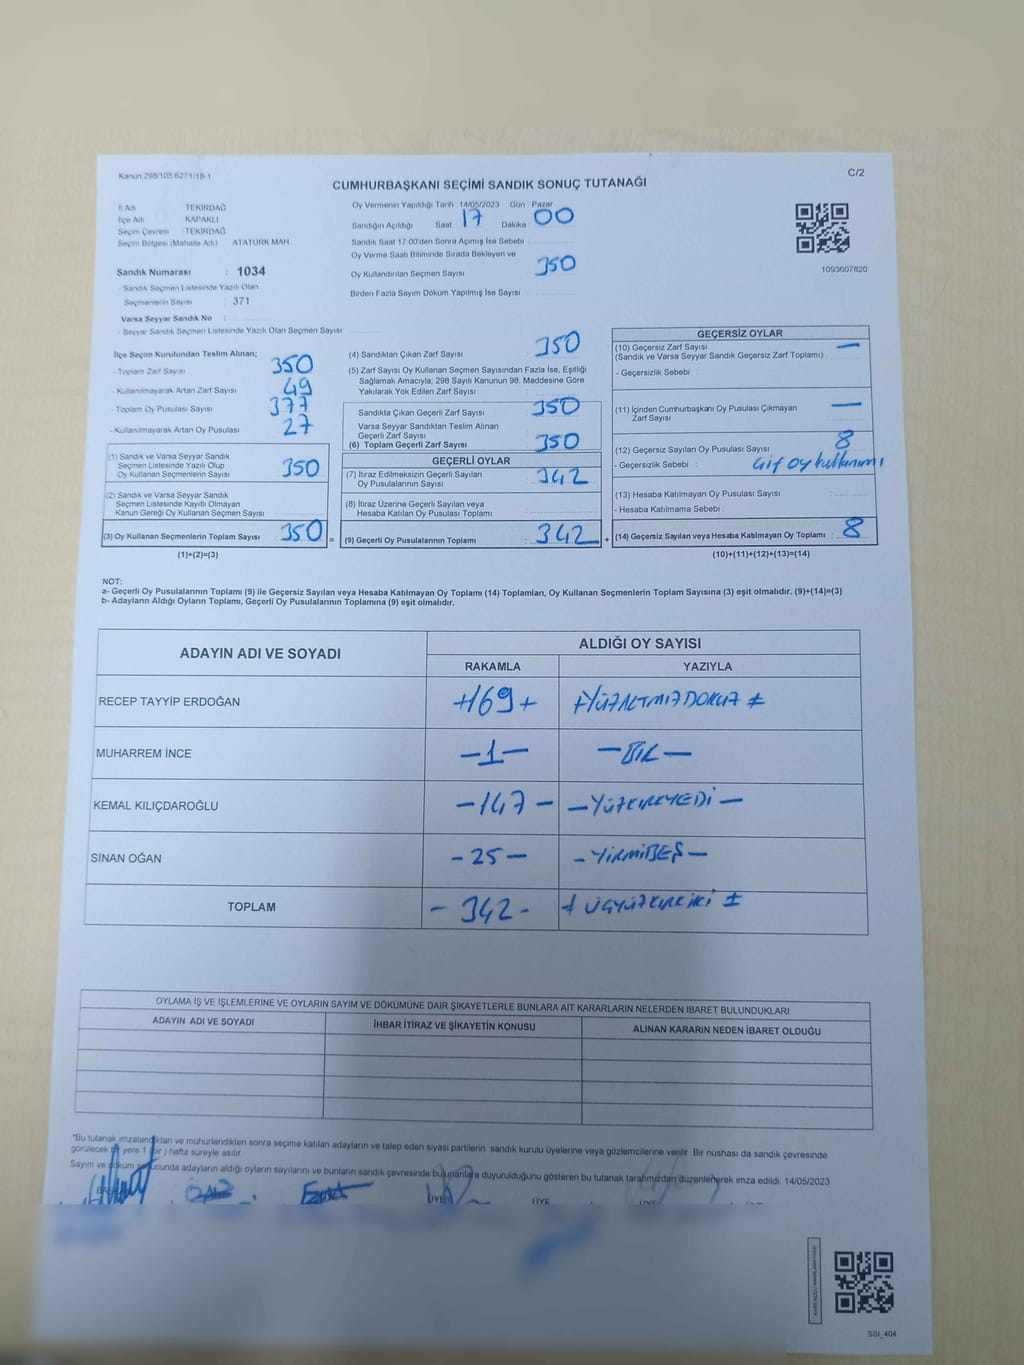 Kanun 298/105 6271/18-1
C/2
CUMHURBAŞKANI SEÇİMİ SANDIK SONUÇ TUTANAĞI
İl Adı TEKİRDAĞ
İlçe Adı KAPAKLI
Seçim Çevresi : TEKİRDAĞ
Seçim Bölgesi (Mahalle Adı) ATATÜRK MAH.
Sandık Numarası : 1034
- Sandık Seçmen Listesinde Yazılı Olan
Seçmenlerin Sayısı : 371
Varsa Seyyar Sandık No :
- Seyyar Sandık Seçmen Listesinde Yazılı Olan Seçmen Sayısı
Oy Vermenin Yapıldığı Tarih 14/05/2023 Gün : Pazar
Sandığın Açıldığı Saat 17 Dakika 00
Sandık Saat 17.00'den Sonra Açımış İse Sebebi
Oy Verme Saati Bitiminde Sırada Bekleyen ve
Oy Kullandırılan Seçmen Sayısı 350
Birden Fazla Sayım Döküm Yapılmış İse Sayısı
1093607820
İlçe Seçim Kurulundan Teslim Alınan;
- Toplam Zarf Sayısı 350
- Kullanılmayarak Artan Zarf Sayısı 49
- Toplam Oy Pusulası Sayısı 377
- Kullanılmayarak Artan Oy Pusulası 27
(1) Sandık ve Varsa Seyyar Sandık
Seçmen Listesinde Yazılı Olup
Oy Kullanan Seçmenlerin Sayısı 350
(2) Sandık ve Varsa Seyyar Sandık
Seçmen Listesinde Kayıtlı Olmayan
Kanun Gereği Oy Kullanan Seçmen Sayısı
(3) Oy Kullanan Seçmenlerin Toplam Sayısı 350 =
(1)+(2)=(3)
(4) Sandıktan Çıkan Zarf Sayısı 350
(5) Zarf Sayısı Oy Kullanan Seçmen Sayısından Fazla İse, Eşitliği
Sağlamak Amacıyla; 298 Sayılı Kanunun 98. Maddesine Göre
Yakılarak Yok Edilen Zarf Sayısı
Sandıkta Çıkan Geçerli Zarf Sayısı 350
Varsa Seyyar Sandıktan Teslim Alınan
Geçerli Zarf Sayısı
(6) Toplam Geçerli Zarf Sayısı 350
GEÇERLİ OYLAR
(7) İtiraz Edilmeksizin Geçerli Sayılan
Oy Pusulalarının Sayısı 342
(8) İtiraz Üzerine Geçerli Sayılan veya
Hesaba Katılan Oy Pusulası Toplamı
(9) Geçerli Oy Pusulalarının Toplamı 342 +
GEÇERSİZ OYLAR
(10) Geçersiz Zarf Sayısı —
(Sandık ve Varsa Seyyar Sandık Geçersiz Zarf Toplamı)
- Geçersizlik Sebebi :
(11) İçinden Cumhurbaşkanı Oy Pusulası Çıkmayan —
Zarf Sayısı
(12) Geçersiz Sayılan Oy Pusulası Sayısı 8
- Geçersizlik Sebebi : Çift oy kullanımı
(13) Hesaba Katılmayan Oy Pusulası Sayısı
- Hesaba Katılmama Sebebi :
(14) Geçersiz Sayılan veya Hesaba Katılmayan Oy Toplamı : 8
(10)+(11)+(12)+(13)=(14)
NOT:
a- Geçerli Oy Pusulalarının Toplamı (9) ile Geçersiz Sayılan veya Hesaba Katılmayan Oy Toplamı (14) Toplamları, Oy Kullanan Seçmenlerin Toplam Sayısına (3) eşit olmalıdır. (9)+(14)=(3)
b- Adayların Aldığı Oyların Toplamı, Geçerli Oy Pusulalarının Toplamına (9) eşit olmalıdır.
ADAYIN ADI VE SOYADI
ALDIĞI OY SAYISI
RAKAMLA YAZIYLA
RECEP TAYYİP ERDOĞAN +169+ +YÜZALTMIZDOKUZ +
MUHARREM İNCE -1- -BİR-
KEMAL KILIÇDAROĞLU -147- -YÜZKIRKYEDİ-
SİNAN OĞAN -25- -YİRMİBEŞ-
TOPLAM -342- + ÜÇYÜZKIRKİKİ +
OYLAMA İŞ VE İŞLEMLERİNE VE OYLARIN SAYIM VE DÖKÜMÜNE DAİR ŞİKAYETLERLE BUNLARA AİT KARARLARIN NELERDEN İBARET BULUNDUKLARI
ADAYIN ADI VE SOYADI İHBAR İTİRAZ VE ŞİKAYETİN KONUSU ALINAN KARARIN NEDEN İBARET OLDUĞU
"Bu tutanak imzalandıktan ve mühürlendikten sonra seçime katılan adayların ve talep eden siyasi partilerin sandık kurulu üyelerine veya gözlemcilerine verilir. Bir nüshası da sandık çevresinde
görülecek bir yere 1 (bir) hafta süreyle asılır.
Sayım ve döküm sonucunda adayların aldığı oyların sayılarını ve bunların sandık çevresinde bulunanlara duyurulduğunu gösteren bu tutanak tarafımızdan düzenlenerek imza edildi. 14/05/2023
ÜYE ÜYE ÜYE
SSI_404